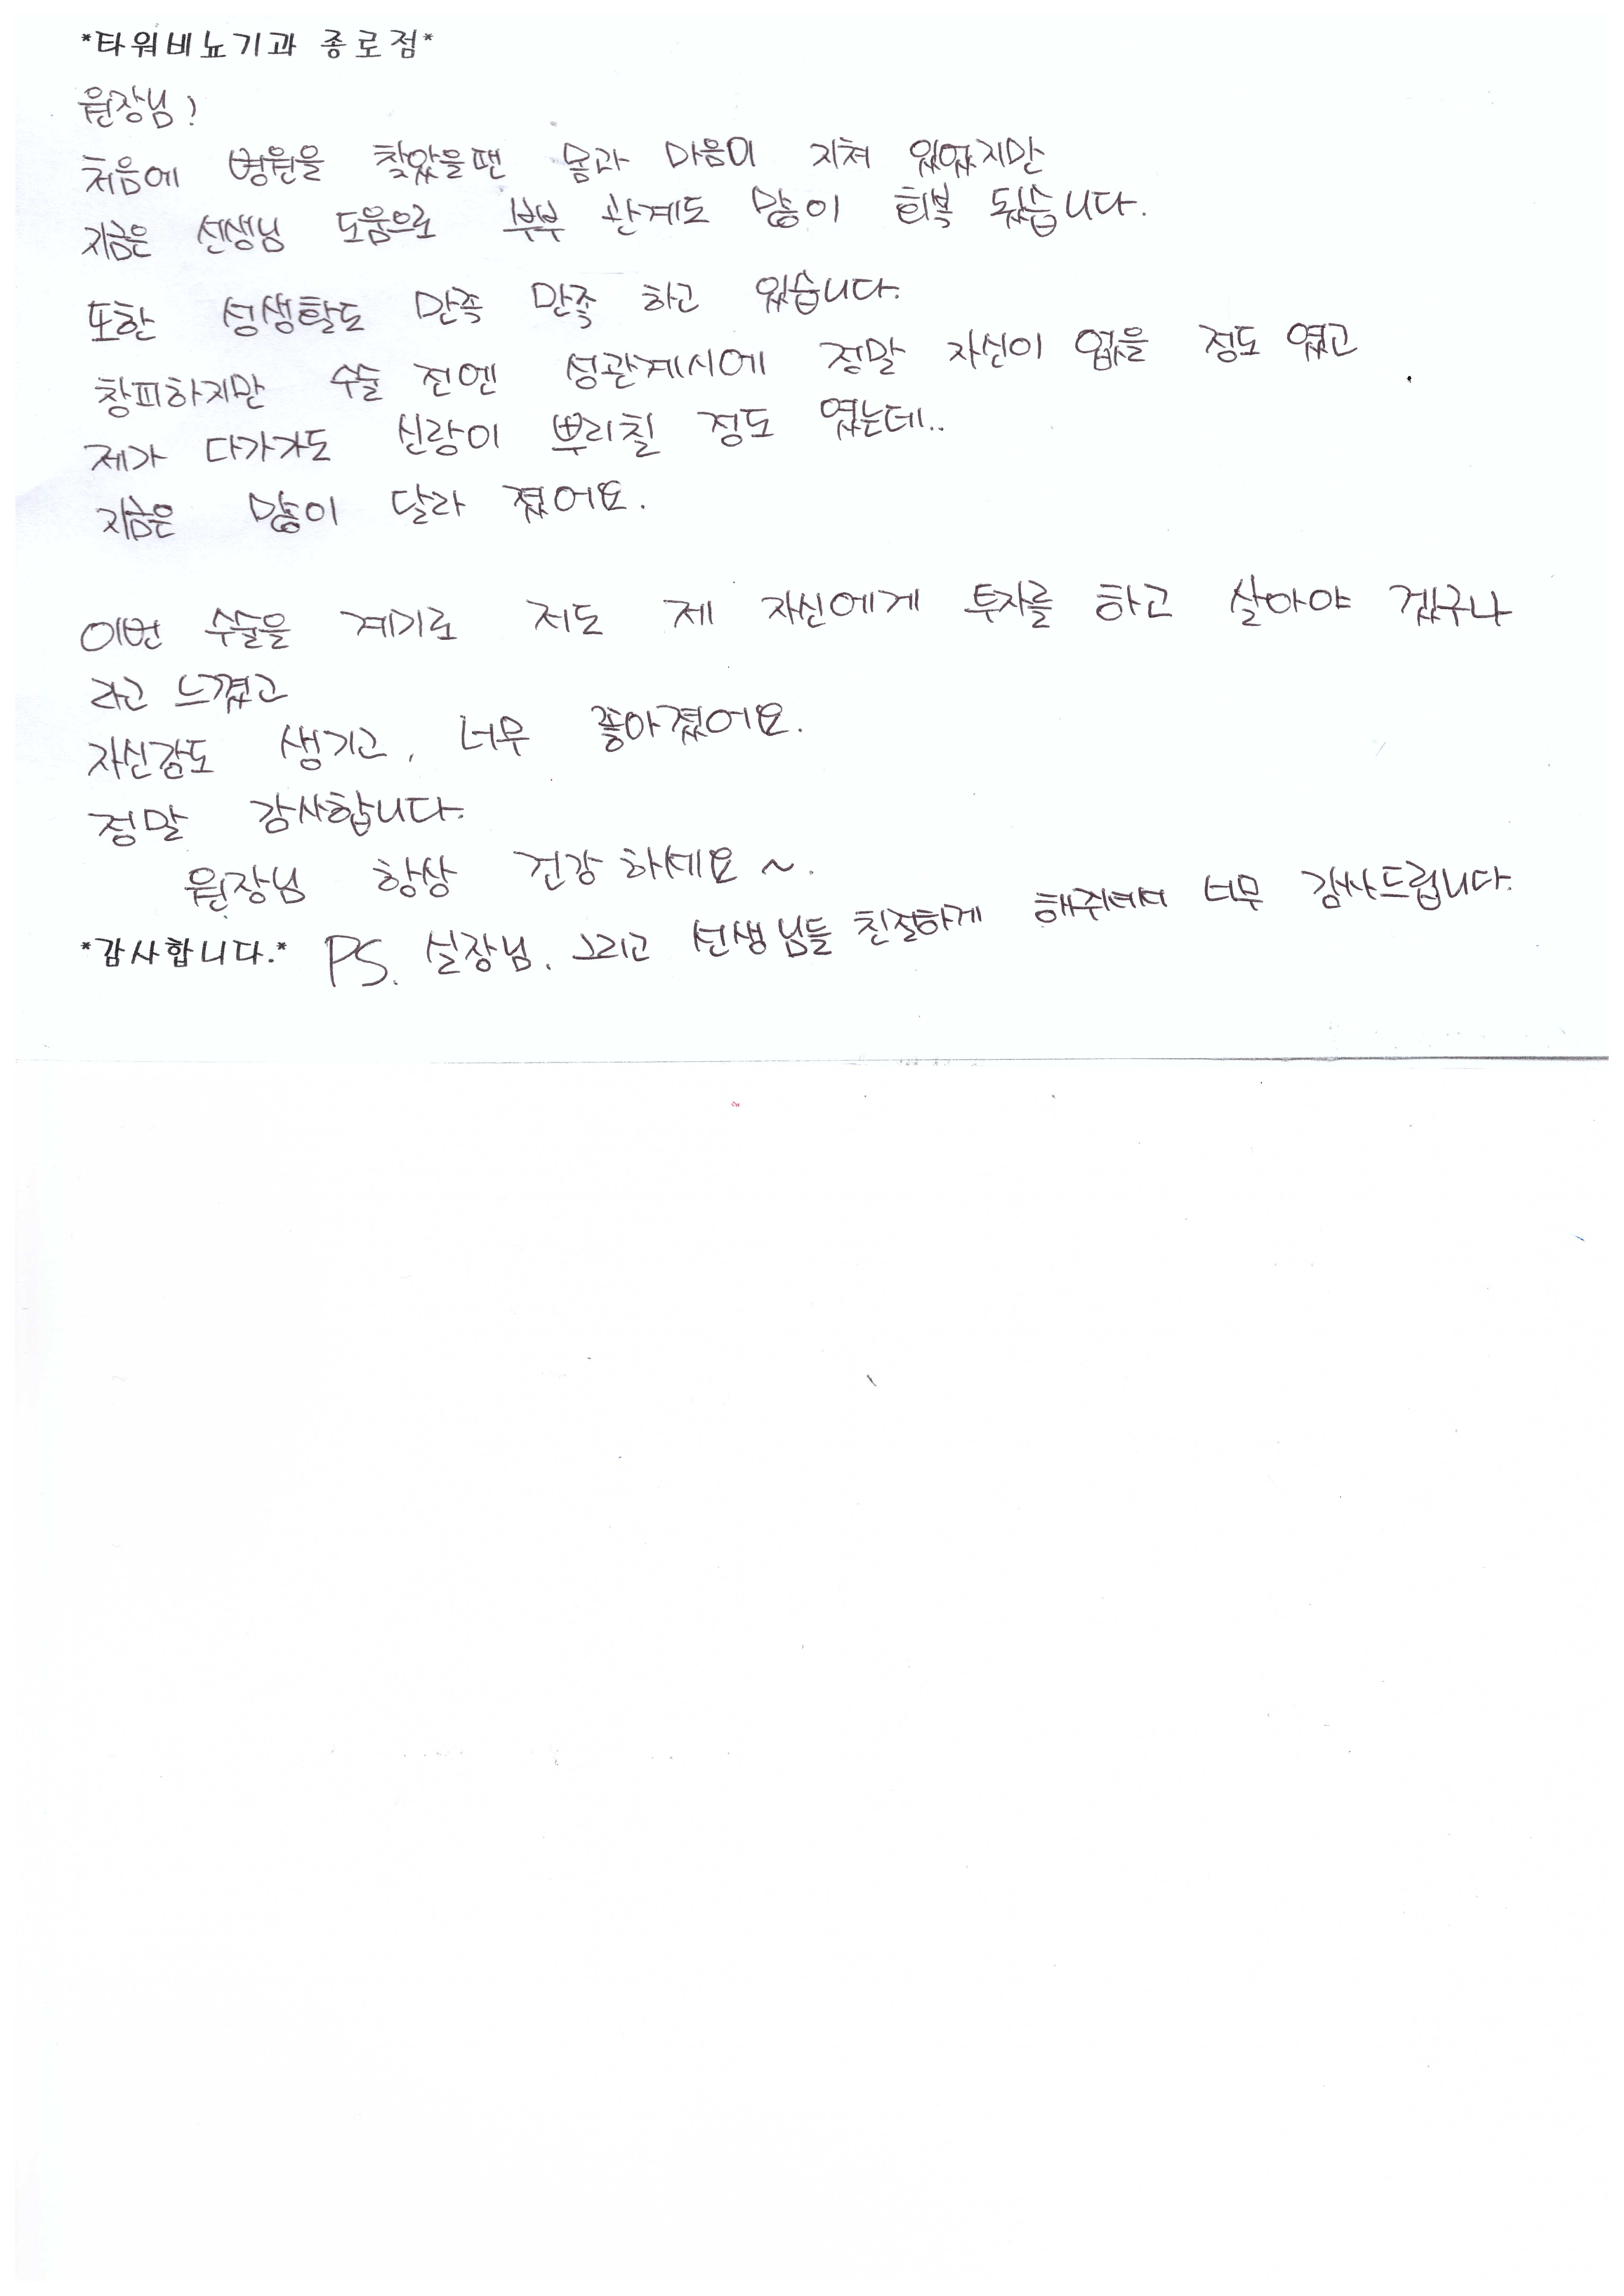 *타워비뇨기과 종로점*
원장님!
처음에 병원을 찾았을땐 몸과 마음이 지쳐 있었지만
지금은 선생님 도움으로 부부 관계도 많이 회복 됬습니다.
또한 성생활도 만족 만족 하고 있습니다.
창피하지만 수술 전엔 성관계시에 정말 자신이 없을 정도 였고
제가 다가가도 신랑이 뿌리칠 정도 였는데..
지금은 많이 달라 졌어요.
이번 수술을 계기로 저도 제 자신에게 투자를 하고 살아야 겠구나
라고 느꼈고
자신감도 생기고, 너무 좋아졌어요.
정말 감사합니다.
원장님 항상 건강 하세요~.
*감사합니다.* PS. 실장님, 그리고 선생님들 친절하게 해주셔서 너무 감사드립니다.